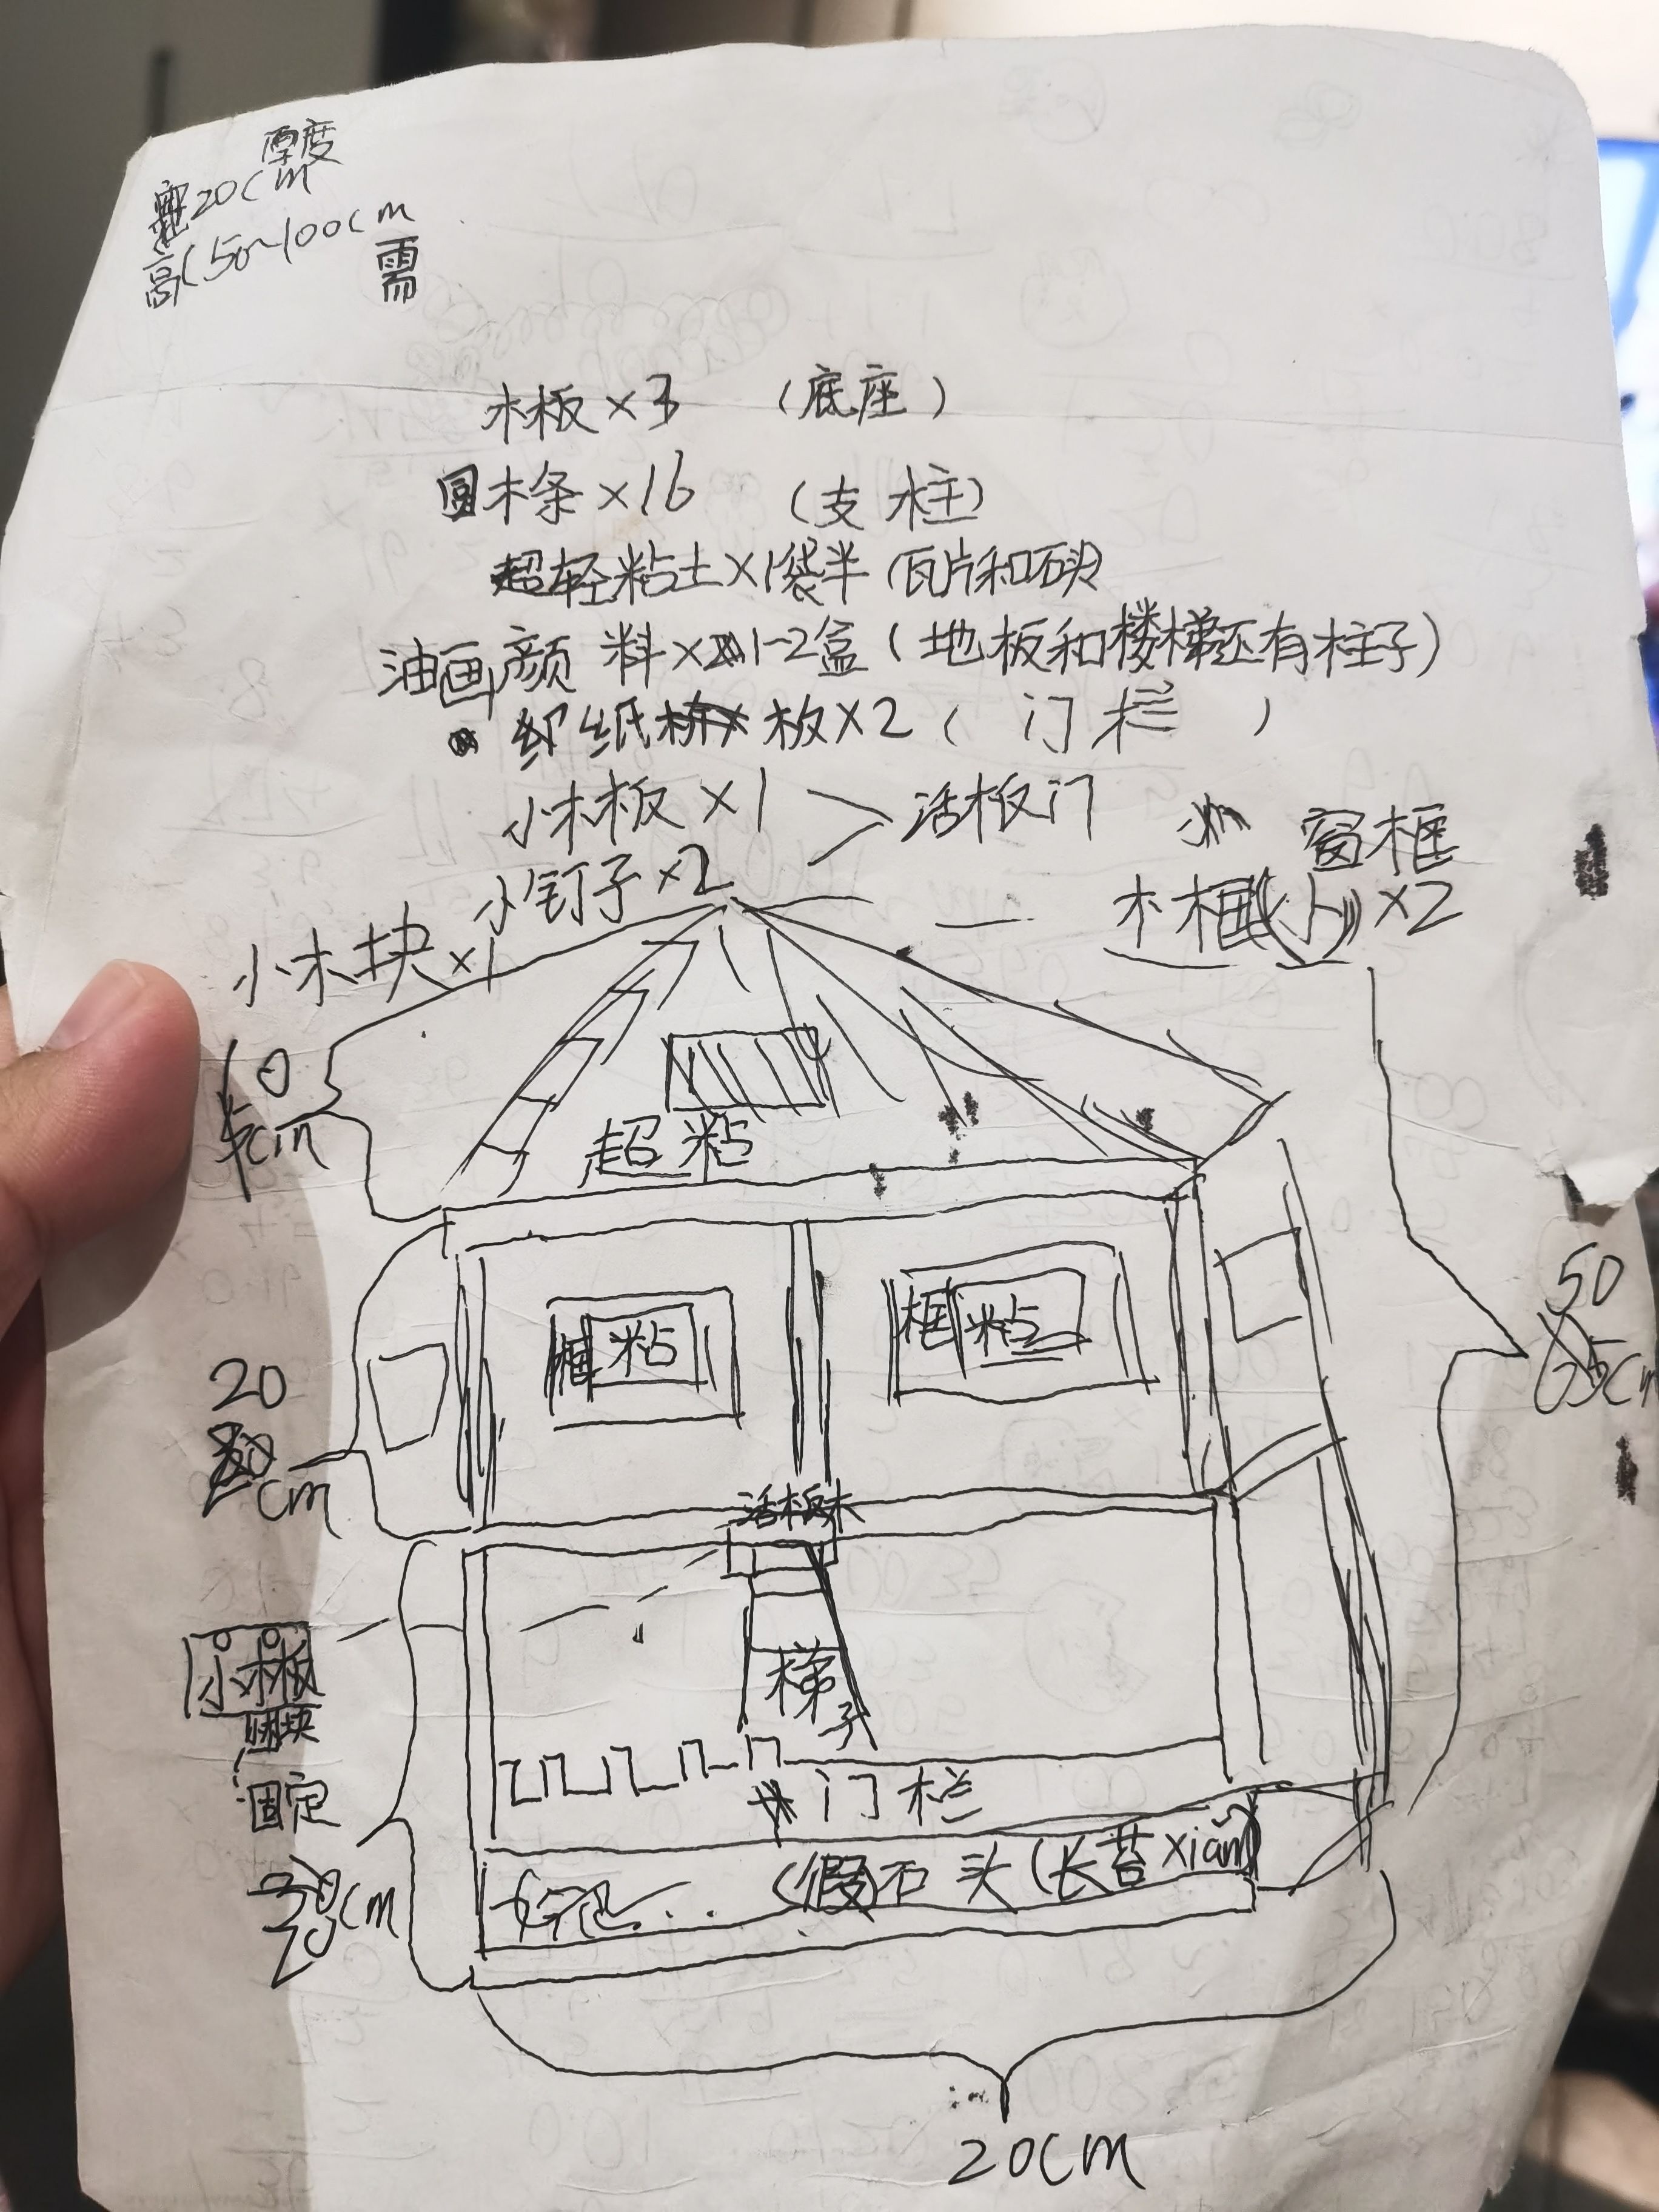 厚度
宽20cm
高(50~100cm
需
木板×3 (底座)
圆木条×16 (支柱)
超轻粘土×1袋半(瓦片和石头)
油画颜料×1-2盒(地板和楼梯还有柱子)
纸板×2(门栏)
小木板×1 > 活板门
小钉子×2
窗框
木框(小)×2
小木块×1
10
cm
超粘
50
cm
框粘
框粘
20
cm
活板木
小木板
木块
固定
梯子
门栏
cm
(假)石头(长苔xiǎn)
20cm